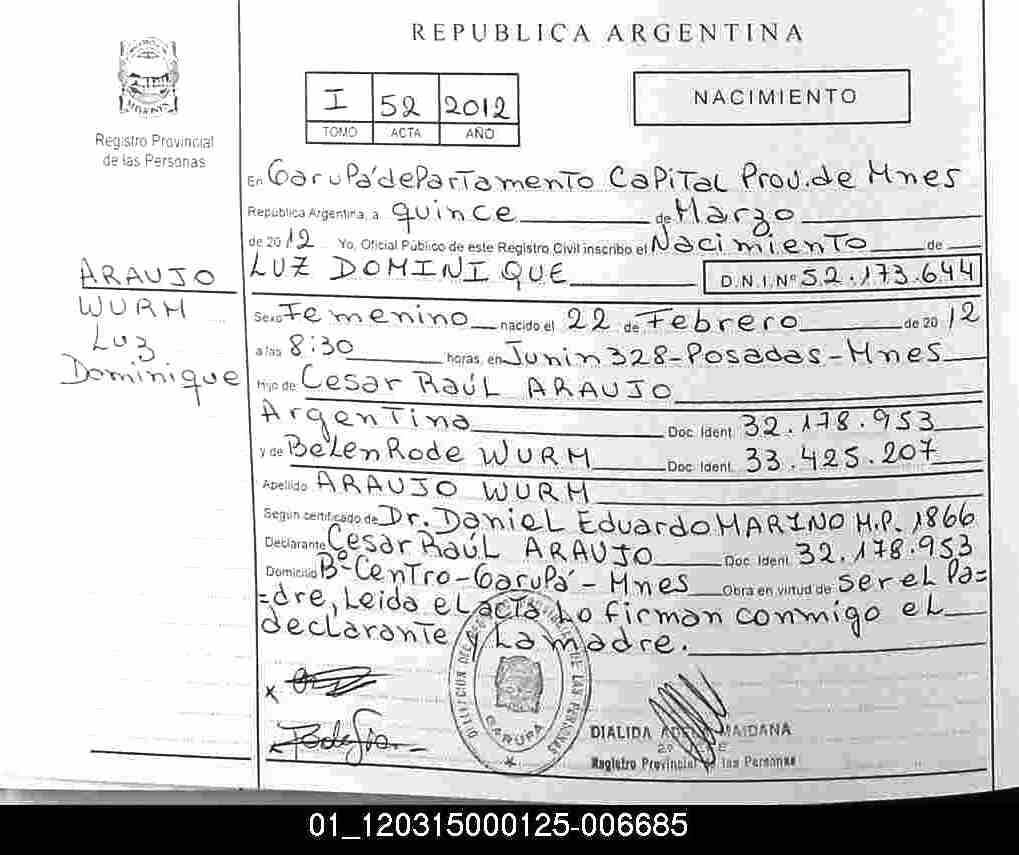 REPUBLICA ARGENTINA
MISIONES
Registro Provincial
de las Personas
I 52 2012
TOMO ACTA AÑO
NACIMIENTO
En Garupá departamento Capital Prov. de Mnes
República Argentina, a quince de Marzo
de 2012 Yo, Oficial Público de este Registro Civil inscribo el Nacimiento de
LUZ DOMINIQUE D.N.I. Nº 52.173.644
ARAUJO
WURM
Luz
Dominique
Sexo Femenino nacido el 22 de Febrero de 2012
a las 8:30 horas, en Junin 328-Posadas-Mnes
Hijo de Cesar Raúl ARAUJO
Argentina Doc. Ident. 32.178.953
y de Belen Rode WURM Doc. Ident. 33.425.207
Apellido ARAUJO WURM
Según certificado de Dr. Daniel Eduardo MARINO M.P. 1866
Declarante Cesar Raúl ARAUJO Doc. Ident. 32.178.953
Domicilio Bº Centro-Garupá-Mnes Obra en virtud de ser el Pa=
=dre, Leida el acta Lo firman conmigo el
declarante y La madre.
DE LAS PERSONAS
GARUPA
DIALIDA MAIDANA
Registro Provincial de las Personas
01_120315000125-006685